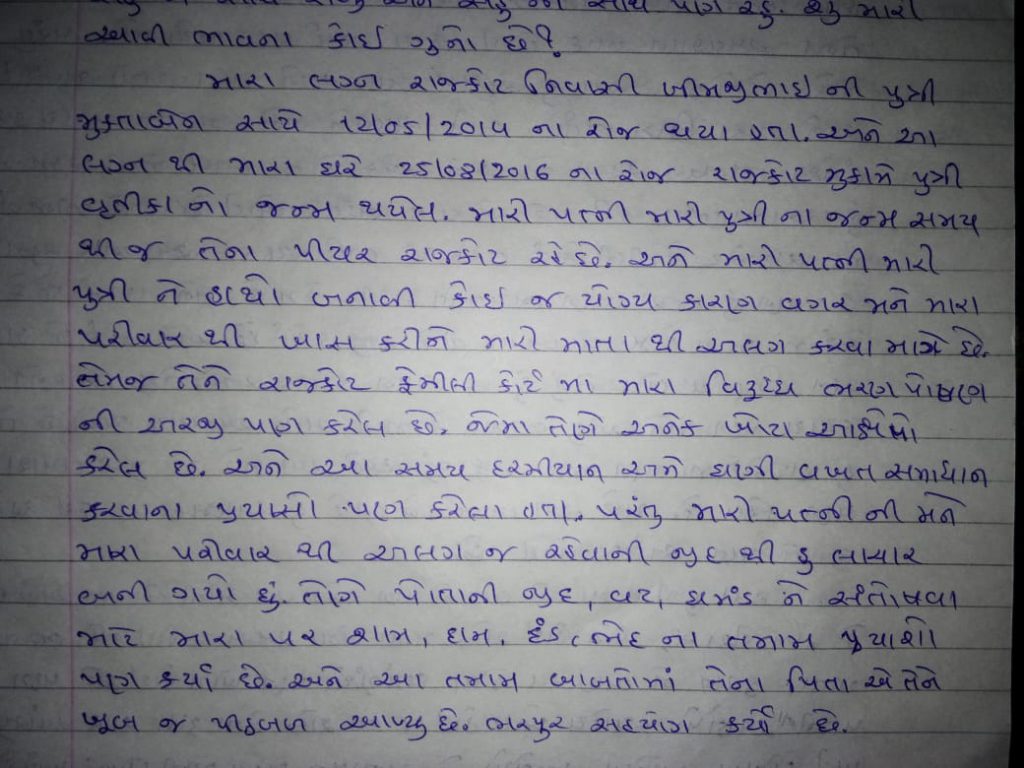 સાથે પણ રહુ. શુ મારી
આવી ભાવના કોઇ ગુનો છે?
મારા લગ્ન રાજકોટ નિવાસી ખીમજીભાઇ ની પુત્રી
મુક્તાબેન સાથે 12/05/2014 ના રોજ થયા હતા. અને આ
લગ્ન થી મારા ઘરે 25/08/2016 ના રોજ રાજકોટ મુકામે પુત્રી
નો જન્મ થયેલ. મારી પત્ની મારી પુત્રી ના જન્મ સમય
થી જ તેના પીયર રાજકોટ રહે છે. અને મારી પત્ની મારી
પુત્રી ને હાથો બનાવી કોઇ જ યોગ્ય કારણ વગર મને મારા
પરીવાર થી ખાસ કરીને મારી માતા થી અલગ કરવા માગે છે.
તેમજ તેને રાજકોટ ફેમીલી કોર્ટ મા મારા વિરુધ્ધ ભરણ પોષણ
ની અરજી પણ કરેલ છે. જેમા તેણે અનેક ખોટા આક્ષેપો
કરેલ છે. અને આ સમય દરમીયાન અમે ઘણી વખત સમાધાન
કરવાના પ્રયાસો પણ કરેલા હતા. પરંતુ મારી પત્ની ની મને
મારા પરીવાર થી અલગ જ રહેવાની જીદ થી હુ લાચાર
બની ગયો છું. તેણે પોતાની જીદ, વટ, ઘમંડ ને સંતોષવા
માટે મારા પર શામ, દામ, દંડ, ભેદ ના તમામ પ્રયાશો
પણ કર્યા છે. અને આ તમામ બાબતોમાં તેના પિતા એ તેને
ખુબ જ પીઠબળ આપ્યુ છે. ભરપુર સહયોગ કર્યો છે.